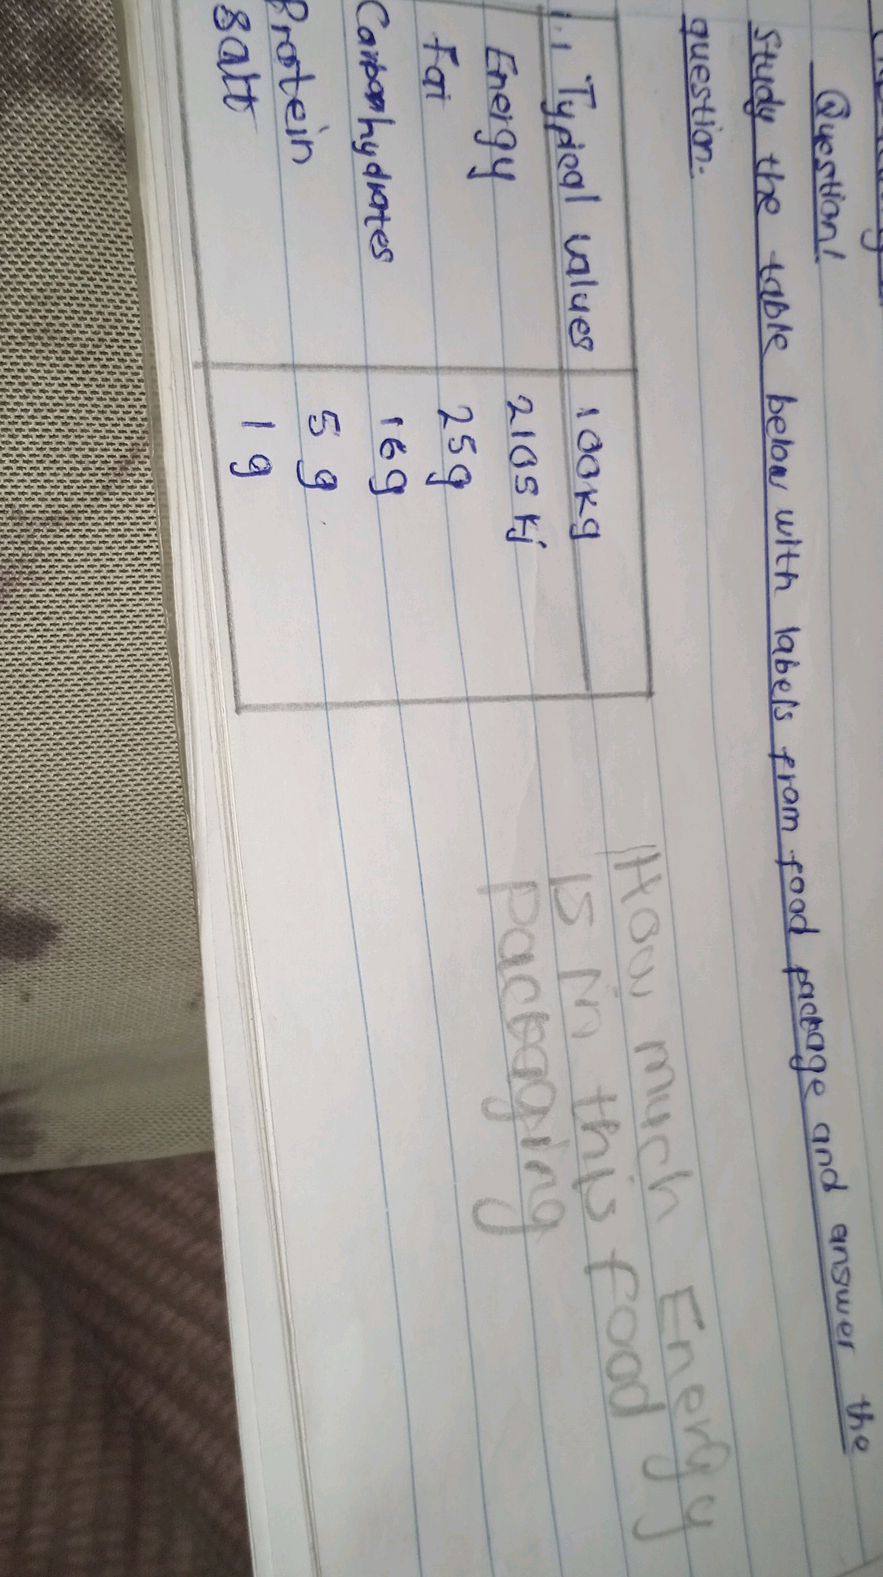 Question 1
Study the table below with labels from food package and answer the
question.
1.1 Typcal values 100kg
Energy 2105 kj
Fat 25g
Carbonhydrates 16g
Protein 5g
salt 1g
How much Energy
is in this food
packaging